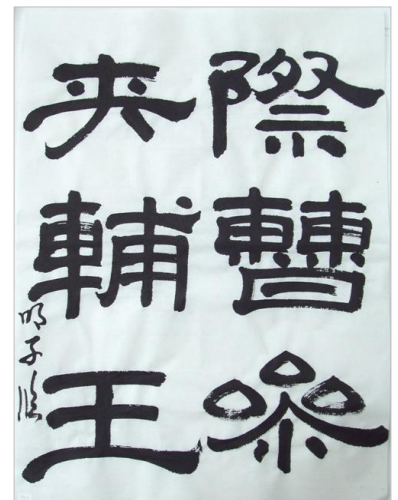 際曹參
夾輔王
明子臨